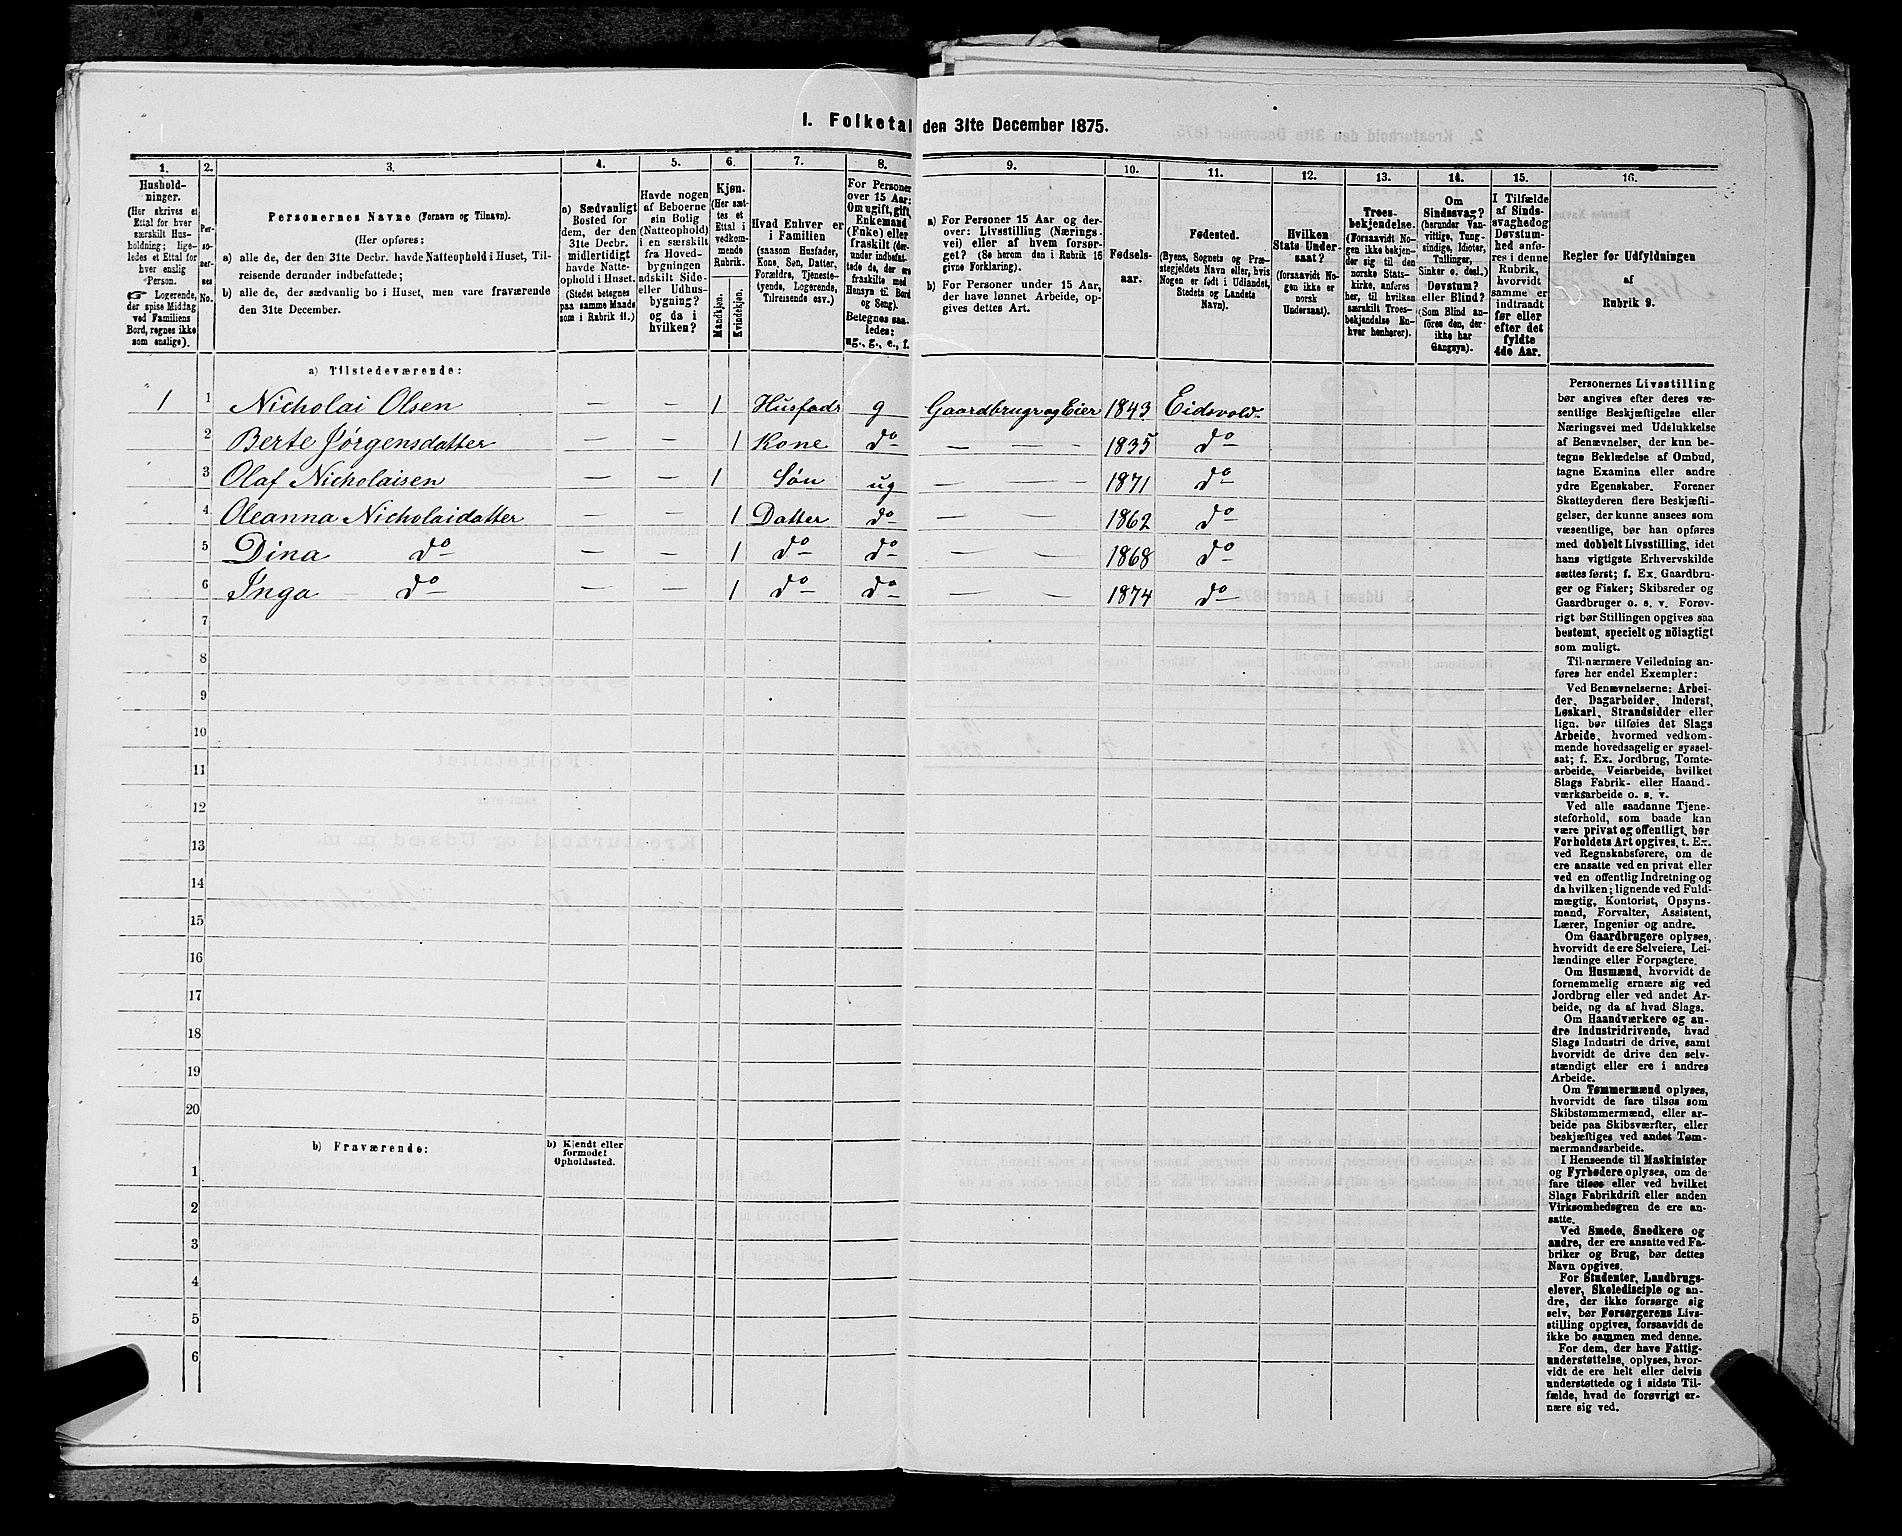 I. Folketal den 31te December 1875.
1. 2. 3. 4. 5. 6. 7. 8. 9. 10. 11. 12. 13. 14. 15. 16.
Hushold-
ninger.
(Her skrives et
Ettal for hver
særskilt Hus-
holdning; lige-
ledes et Ettal for
hver enslig
Person.
☞ Logerende,
der spise Middag
ved Familiens
Bord, regnes ikke
som enslige).
Per-
so-
ner-
nes
No.
Personernes Navne (Fornavn og Tilnavn).
(Her opføres:
a) alle de, der den 31te Decbr. havde Natteophold i Huset, Til-
reisende derunder indbefattede;
b) alle de, der sædvanlig bo i Huset, men vare fraværende
den 31te December.
a) Sædvanligt
Bosted for
dem, der den
31te Decbr.
midlertidigt
havde Natte-
ophold i Huset.
(Stedet betegnes
paa samme Maade
som i Rubrik 11.)
Havde nogen
af Beboerne
sin Bolig
(Natteophold)
i en særskilt
fra Hoved-
bygningen
adskilt Side-
eller Udhus-
bygning?
og da i
hvilken?
Kjøn.
(Her sæt-
tes et
Ettal i
vedkom-
mende
Rubrik.
Mandkjøn.
Kvindekjøn.
Hvad Enhver er
i Familien
(saasom Husfader,
Kone, Søn, Datter,
Forældre, Tjeneste-
tyende, Logerende,
Tilreisende osv.)
For Personer
over 15 Aar:
Om ugift, gift,
Enkemand
(Enke) eller
fraskilt (der-
under indbefat-
tede de, der ere
fraskilte med
Hensyn til Bord
og Seng).
Betegnes saa-
ledes:
ug., g., e., f.
a) For Personer 15 Aar og der-
over: Livsstilling (Nærings-
vei) eller af hvem forsør-
get? (Se herom den i Rubrik 16
givne Forklaring).
b) For Personer under 15 Aar,
der have lønnet Arbeide, op-
gives dettes Art.
Fødsels-
aar.
Fødested.
(Byens, Sognets og Præ-
stegjeldets Navn eller, hvis
Nogen er født i Udlandet,
Stedets og Landets
Navn).
Hvilken
Stats Under-
saat?
(forsaavidt No-
gen ikke er
norsk
Undersaat).
Troes-
bekjendelse.
(Forsaavidt No-
gen ikke bekjen-
der sig til den
norske Stats-
kirke, anføres
her, til hvilken
særskilt Troes-
bekjendelse En-
hver henhører).
Om
Sindssvag?
(herunder Van-
vittige, Tung-
sindige, Idioter,
Tullinger,
Sinker o. desl.)
Døvstum?
eller Blind?
(Som Blind an-
føres den, der
ikke har
Gangsyn).
I Tilfælde
af Sinds-
svaghed og
Døvstum-
hed anfø-
res i denne
Rubrik,
hvorvidt
samme er
indtraadt
før eller
efter det
fyldte
4de Aar.
Regler for Udfyldningen
af
Rubrik 9.
a) Tilstedeværende:
1 1 Nicholai Olsen — — 1 Husfadr g Gaardbruger og Eier 1843 Eidsvold.
2 Berte Jørgensdatter — — 1 Kone do — — — 1835 do
3 Olaf Nicholaisen — — 1 Søn ug — — — 1871 do
4 Oleanna Nicholaidatter — — 1 Datter do — — 1862 do
5 Dina do — — 1 do do — — 1868 do
6 Inga — do — — 1 do do — — 1874 do
7
8
9
10
11
12
13
14
15
16
17
18
19
20
b) Fraværende:
b) Kjendt eller
formodet
Opholdssted.
1
2
3
4
5
6
Personernes Livsstilling
bør angives efter deres væ-
sentlige Beskjæftigelse eller
Næringsvei med Udelukkelse
af Benævnelser, der kun be-
tegne Beklædelse af Ombud,
tagne Examina eller andre
ydre Egenskaber. Forener
Skatteyderen flere Beskjæfti-
gelser, der kunne ansees som
væsentlige, bør han opføres
med dobbelt Livsstilling, idet
hans vigtigste Erhvervskilde
sættes først; f. Ex. Gaardbru-
ger og Fisker; Skibsreder og
Gaardbruger o. s. v. Forøv-
rigt bør Stillingen opgives saa
bestemt, specielt og nöiagtigt
som muligt.
Til nærmere Veiledning an-
føres her endel Exempler:
Ved Benævnelserne: Arbei-
der, Dagarbeider, Inderst,
Løskarl, Strandsidder eller
lign. bør tilføies det Slags
Arbeide, hvormed vedkom-
mende hovedsagelig er syssel-
sat; f. Ex. Jordbrug, Tomte-
arbeide, Veiarbeide, hvilket
Slags Fabrik- eller Haand-
værksarbeide o. s. v.
Ved alle saadanne Tjene-
steforhold, som baade kan
være privat og offentligt, bør
Forholdets Art opgives, t. Ex.
ved Regnskabsførere, om de
ere ansatte ved en privat eller
ved en offentlig Indretning og
da hvilken; lignende ved Fuld-
mægtig, Kontorist, Opsyns-
mand, Forvalter, Assistent,
Lærer, Ingeniør og andre.
Om Gaardbrugere oplyses,
hvorvidt de ere Selveiere, Lei-
lændinge eller Forpagtere.
Om Husmænd, hvorvidt de
fornemmelig ernære sig ved
Jordbrug eller ved andet Ar-
beide, og da af hvad Slags.
Om Haandværkere og an-
dre Industridrivende, hvad
Slags Industri de drive, samt
hvorvidt de drive den selv-
stændigt eller ere i andres
Arbeide.
Om Tømmermænd oplyses,
hvorvidt de fare tilsøs som
Skibstømmermænd, eller ar-
beide paa Skibsværfter, eller
beskjæftiges ved andet Tøm-
mermandsarbeide.
I Henseende til Maskinister
og Fyrbødere oplyses, om de
fare tilsøs eller ved hvilket
Slags Fabrikdrift eller anden
Virksomhedsgren de ere an-
satte.
Ved Smede, Snedkere og
andre, der ere ansatte ved Fa-
briker og Brug, bør dettes
Navn opgives.
For Studenter, Landbrugs-
elever, Skoledisciple og an-
dre, der ikke forsørge sig
selv, bør Forsørgerens Livs-
stilling opgives, forsaavidt de
ikke bo sammen med denne.
For dem, der have Fattig-
understøttelse, oplyses, hvor-
vidt de ere helt eller delvis
understøttede og i sidste Til-
fælde, hvad de forøvrigt er-
nære sig ved.